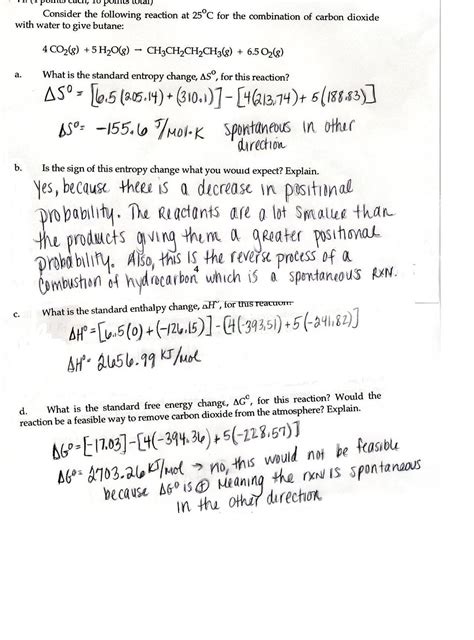 (1 points each, 10 points total)
Consider the following reaction at 25°C for the combination of carbon dioxide
with water to give butane:
4 CO₂(g) + 5 H₂O(g) → CH₃CH₂CH₂CH₃(g) + 6.5 O₂(g)
a. What is the standard entropy change, ΔS°, for this reaction?
ΔS° = [6.5(205.14) + (310.1)] - [4(213.74) + 5(188.83)]
ΔS° = -155.6 J/mol·K spontaneous in other
direction
b. Is the sign of this entropy change what you would expect? Explain.
Yes, because there is a decrease in positional
probability. The Reactants are a lot smaller than
the products giving them a greater positional
probability. Also, this is the reverse process of a
combustion of hydrocarbon which is a spontaneous RXN.
c. What is the standard enthalpy change, ΔH°, for this reaction?
ΔH° = [6.5(0) + (-126.15)] - [4(-393.51) + 5(-241.82)]
ΔH° = 2656.99 KJ/mol
d. What is the standard free energy change, ΔG°, for this reaction? Would the
reaction be a feasible way to remove carbon dioxide from the atmosphere? Explain.
ΔG° = [-17.03] - [4(-394.36) + 5(-228.57)]
ΔG° = 2703.26 KJ/mol → no, this would not be feasible
because ΔG° is ⊕ meaning the rxn is spontaneous
in the other direction